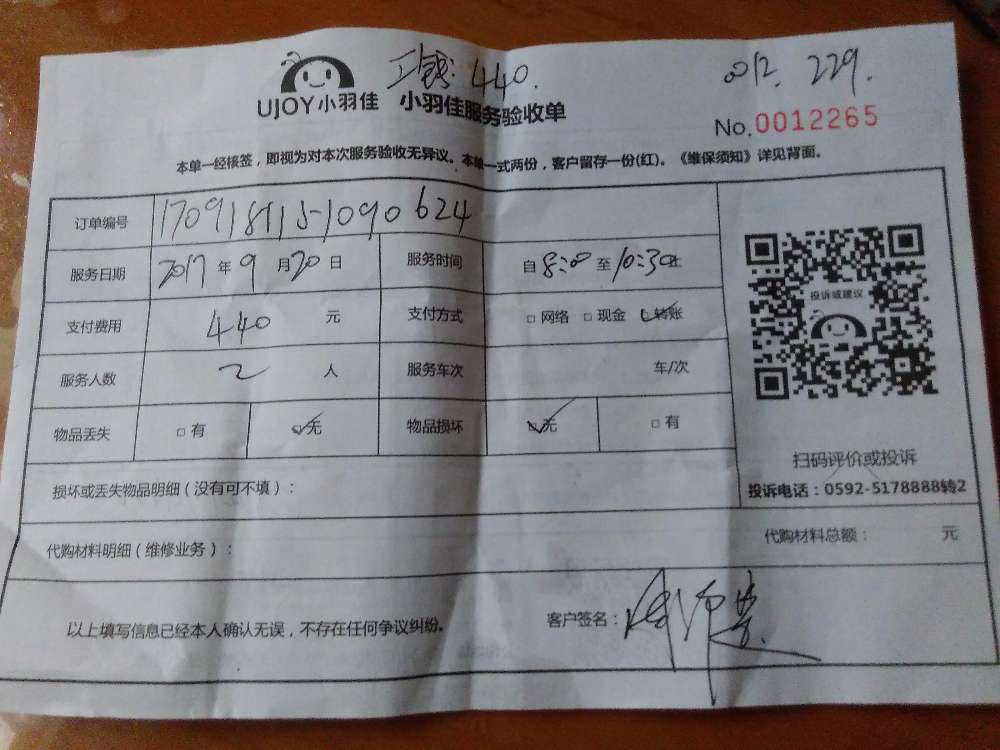 工钱 440.
0012. 229.
UJOY小羽佳 小羽佳服务验收单
No.0012265
本单一经核签，即视为对本次服务验收无异议。本单一式两份，客户留存一份(红)。《维保须知》详见背面。
订单编号 1709181151090624
服务日期 2017年9月20日 服务时间 自8:00至10:30止
支付费用 440 元 支付方式 □网络 □现金 ☑转账
服务人数 2 人 服务车次 车/次
物品丢失 □有 ☑无 物品损坏 ☑无 □有
损坏或丢失物品明细（没有可不填）：
代购材料明细（维修业务）： 代购材料总额： 元
以上填写信息已经本人确认无误，不存在任何争议纠纷。 客户签名：
投诉或建议
扫码评价或投诉
投诉电话：0592-5178888转2